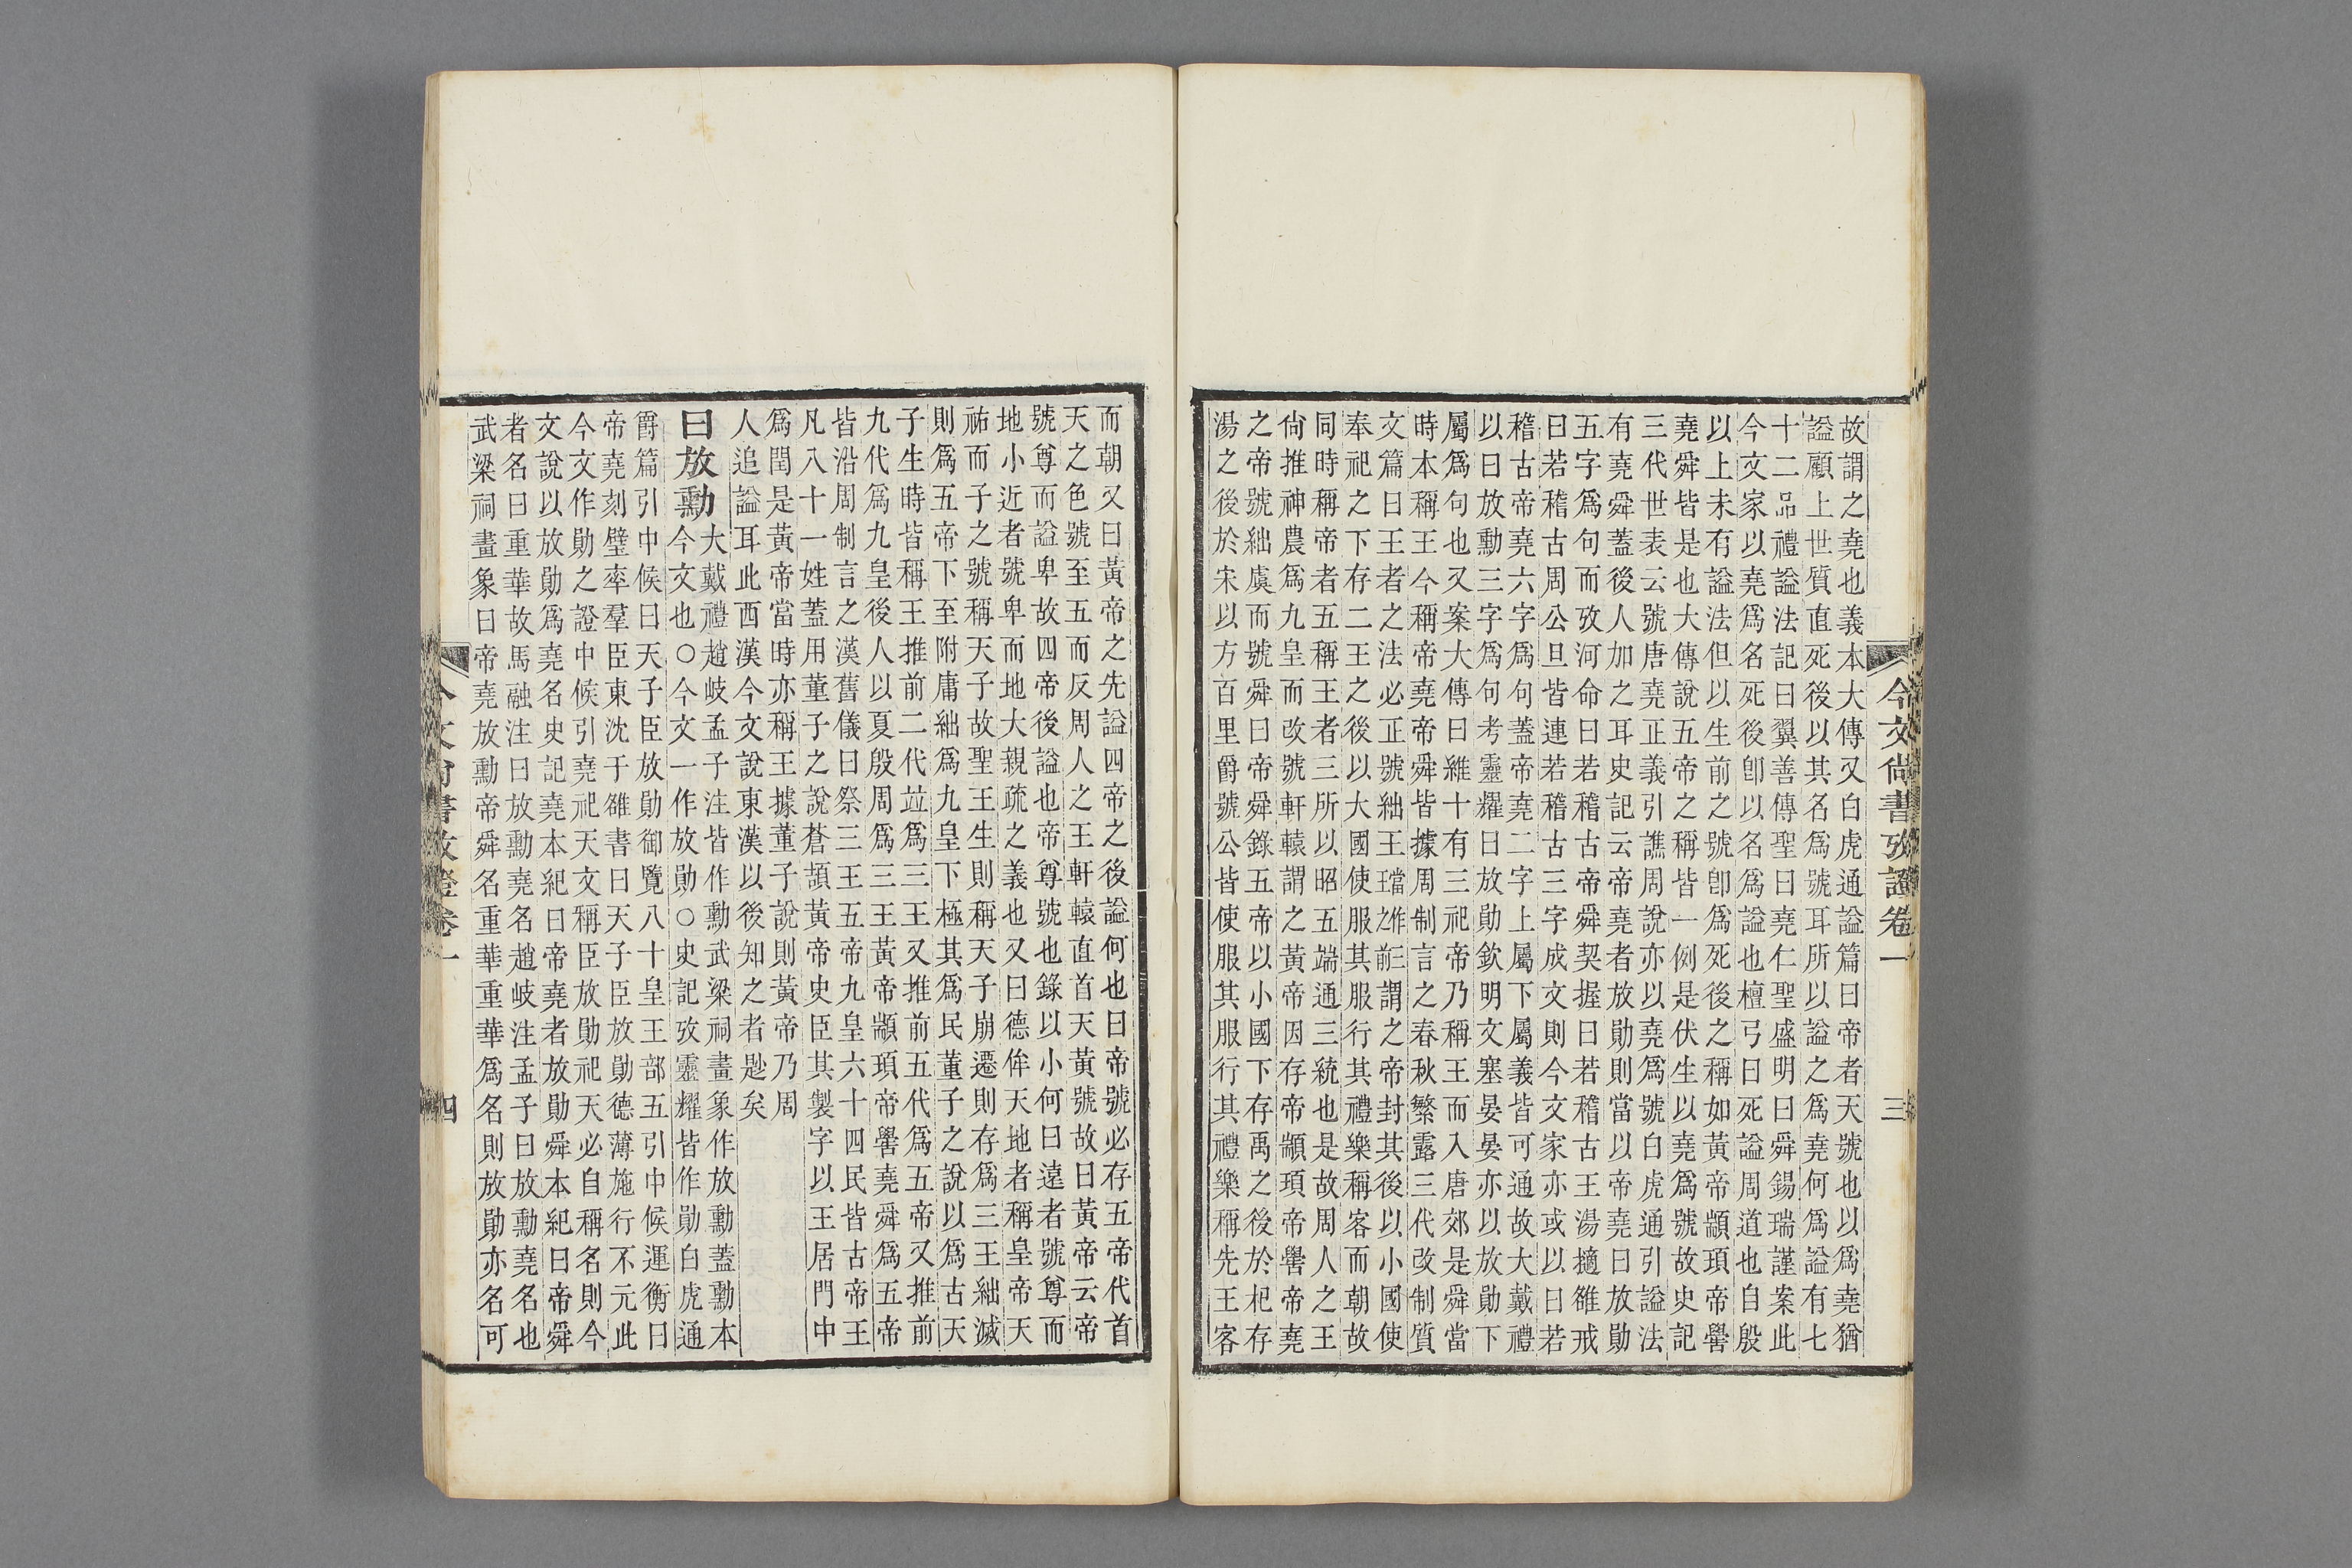 今文尙書攷證卷一 三
故謂之堯也義本大傳又白虎通謚篇曰帝者天號也以爲堯猶
謚顧上世質直死後以其名爲號耳所以謚之爲堯何爲謚有七
十二品禮謚法記曰翼善傳聖曰堯仁聖盛明曰舜錫瑞謹案此
今文家以堯爲名死後卽以名爲謚也檀弓曰死謚周道也自殷
以上未有謚法但以生前之號卽爲死後之稱如黃帝顓頊帝嚳
堯舜皆是也大傳說五帝之稱皆一例是伏生以堯爲號故史記
三代世表云號唐堯正義引譙周說亦以堯爲號白虎通引謚法
有堯舜蓋後人加之耳史記云帝堯者放勛則當以帝堯曰放勛
五字爲句而攷河命曰若稽古帝舜契握曰若稽古王湯擿雒戒
曰若稽古周公旦皆連若稽古三字成文則今文家亦或以曰若
稽古帝堯六字爲句蓋帝堯二字上屬下屬義皆可通故大戴禮
以曰放勳三字爲句考靈耀曰放勛欽明文塞晏晏亦以放勛下
屬爲句也又案大傳曰維十有三祀帝乃稱王而入唐郊是舜當
時本稱王今稱帝堯帝舜皆據周制言之春秋繁露三代改制質
文篇曰王者之法必正號絀王謂之帝封其後以小國使
奉祀之下存二王之後以大國使服其服行其禮樂稱客而朝故
同時稱帝者五稱王者三所以昭五端通三統也是故周人之王
尙推神農爲九皇而改號軒轅謂之黃帝因存帝顓頊帝嚳帝堯
之帝號絀虞而號舜曰帝舜錄五帝以小國下存禹之後於杞存
湯之後於宋以方百里爵號公皆使服其服行其禮樂稱先王客
而朝又曰黃帝之先謚四帝之後謚何也曰帝號必存五帝代首
天之色號至五而反周人之王軒轅直首天黃號故曰黃帝云帝
號尊而謚卑故四帝後謚也帝尊號也錄以小何曰遠者號尊而
地小近者號卑而地大親疏之義也又曰德侔天地者稱皇帝天
祐而子之號稱天子故聖王生則稱天子崩遷則存爲三王絀滅
則爲五帝下至附庸絀爲九皇下極其爲民董子之說以爲古天
子生時皆稱王推前二代竝爲三王又推前五代爲五帝又推前
九代爲九皇後人以夏殷周爲三王黃帝顓頊帝嚳堯舜爲五帝
皆沿周制言之漢舊儀曰祭三王五帝九皇六十四民皆古帝王
凡八十一姓蓋用董子之說蒼頡黃帝史臣其製字以王居門中
爲閏是黃帝當時亦稱王據董子說則黃帝乃周
人追謚耳此西漢今文說東漢以後知之者尟矣
曰放勳
大戴禮趙岐孟子注皆作勳武梁祠畫象作放勳蓋勳本
今文也○今文一作放勛○史記攷靈耀皆作勛白虎通
爵篇引中候曰天子臣放勛御覽八十皇王部五引中候運衡曰
帝堯刻璧率羣臣東沈于雒書曰天子臣放勛德薄施行不元此
今文作勛之證中候引堯祀天文稱臣放勛祀天必自稱名則今
文說以放勛爲堯名史記堯本紀曰帝堯者放勛舜本紀曰帝舜
者名曰重華故馬融注曰放勳堯名趙岐注孟子曰放勳堯名也
武梁祠畫象曰帝堯放勳帝舜名重華重華爲名則放勛亦名可
今文尙書攷證卷一 四